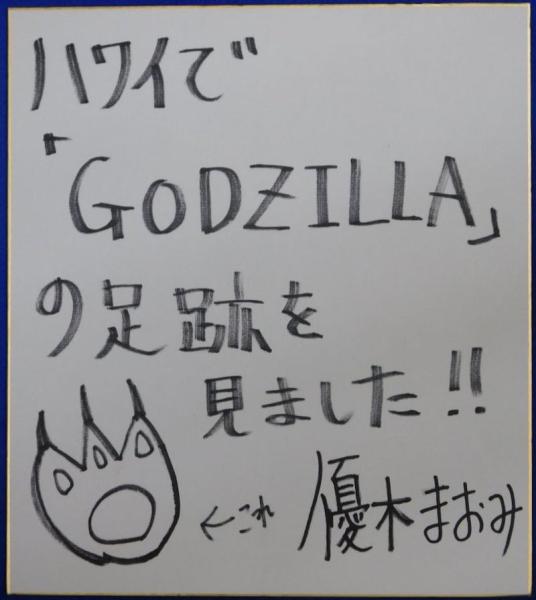 ハワイで
「GODZILLA」
の足跡を
見ました!!
←これ
優木まおみ